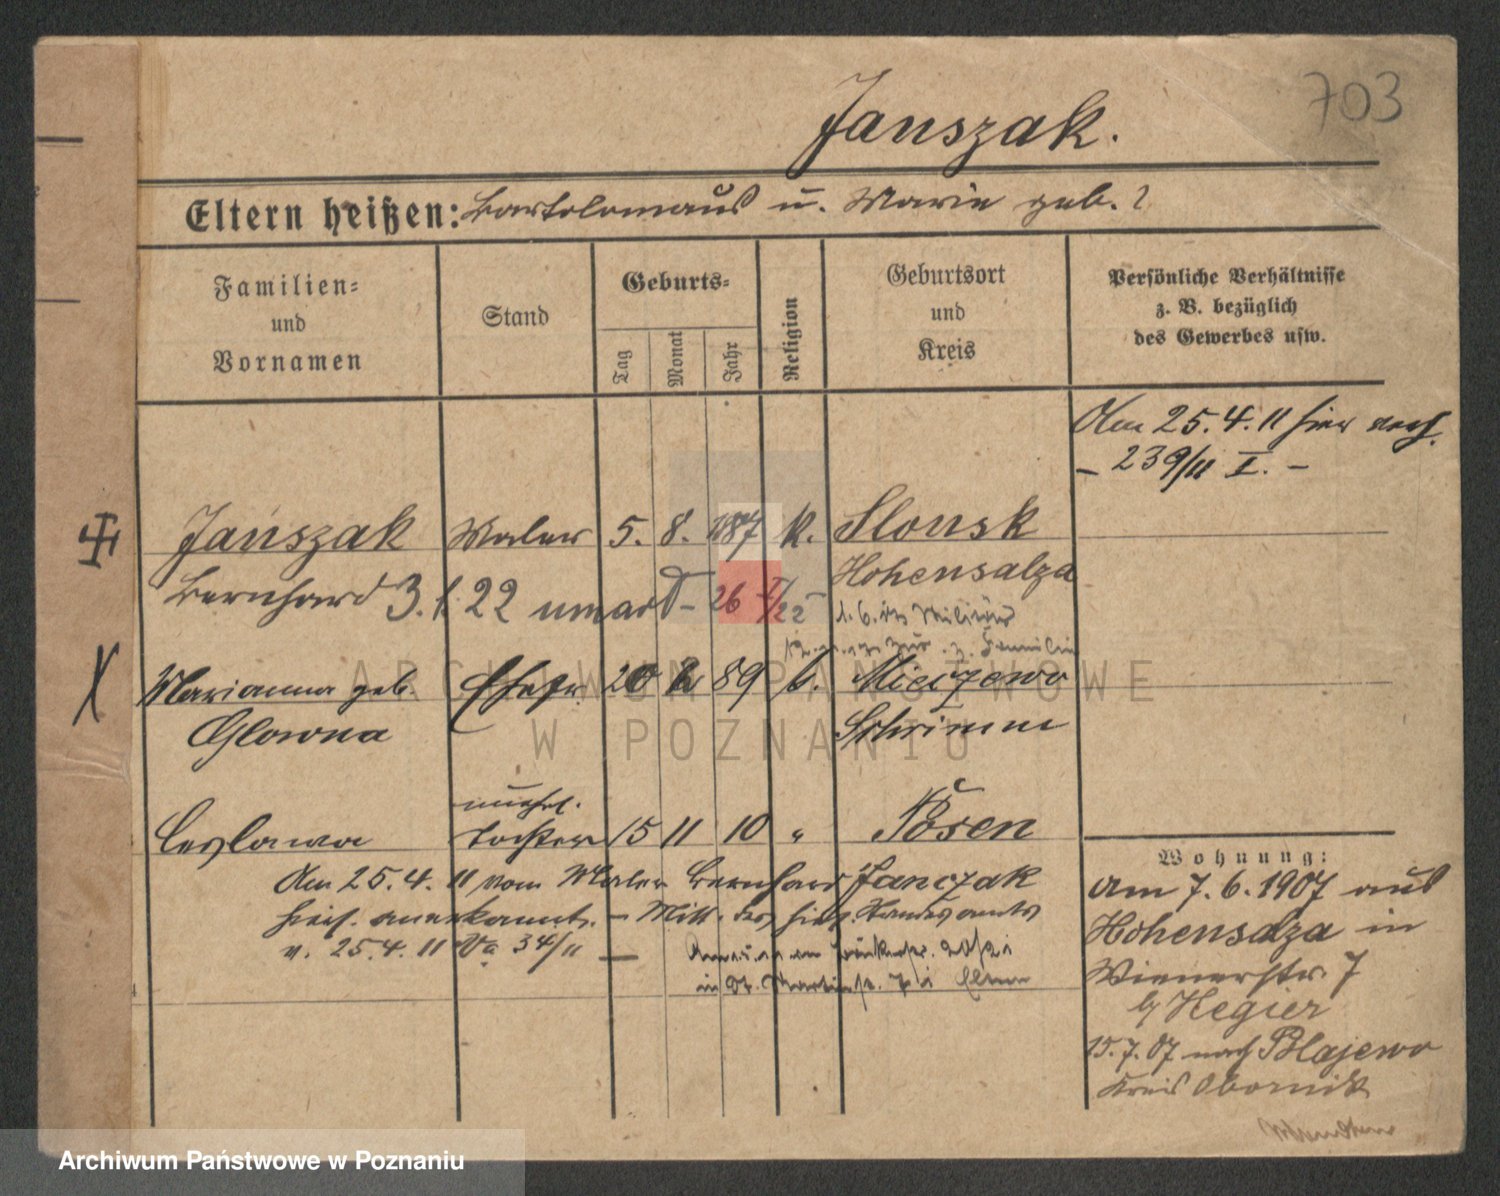 703
Janszak.
Eltern heißen: Bartolomaus u. Marie geb. ?
Familien=
und
Vornamen
Stand
Geburts=
Tag
Monat
Jahr
Religion
Geburtsort
und
Kreis
Persönliche Verhältnisse
z. B. bezüglich
des Gewerbes usw.
Am 25.4.11 hier
- 239/11 I. -
Janszak Maler 5. 8. 187 K. Slonsk
Bernhard 3.1.22 Hohensalza
Militär
Marianna geb. Ehefr 20 89 k. Mieczewo
Glowna Schrimm
unehel.
Ceslawa Tochter 15 11 10 " Posen
Am 25.4.11 vom Maler Bernhard Janczak
hies. anerkannt. - Mitt. des hies. Standesamts
v. 25.4.11 Va 34/11 -
in St. Martinstr. 7
Wohnung:
Am 7.6.1907 aus
Hohensalza in
Wienerstr. 7
b/ Hegier
15.7.07 nach Blajewo
Kreis Obornik
ARCHIWUM PAŃSTWOWE
W POZNANIU
Archiwum Państwowe w Poznaniu